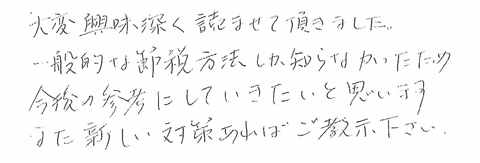 大変興味深く読ませて頂きました。
一般的な節税方法しか知らなかったため
今後の参考にしていきたいと思います
また新しい対策あればご教示下さい。